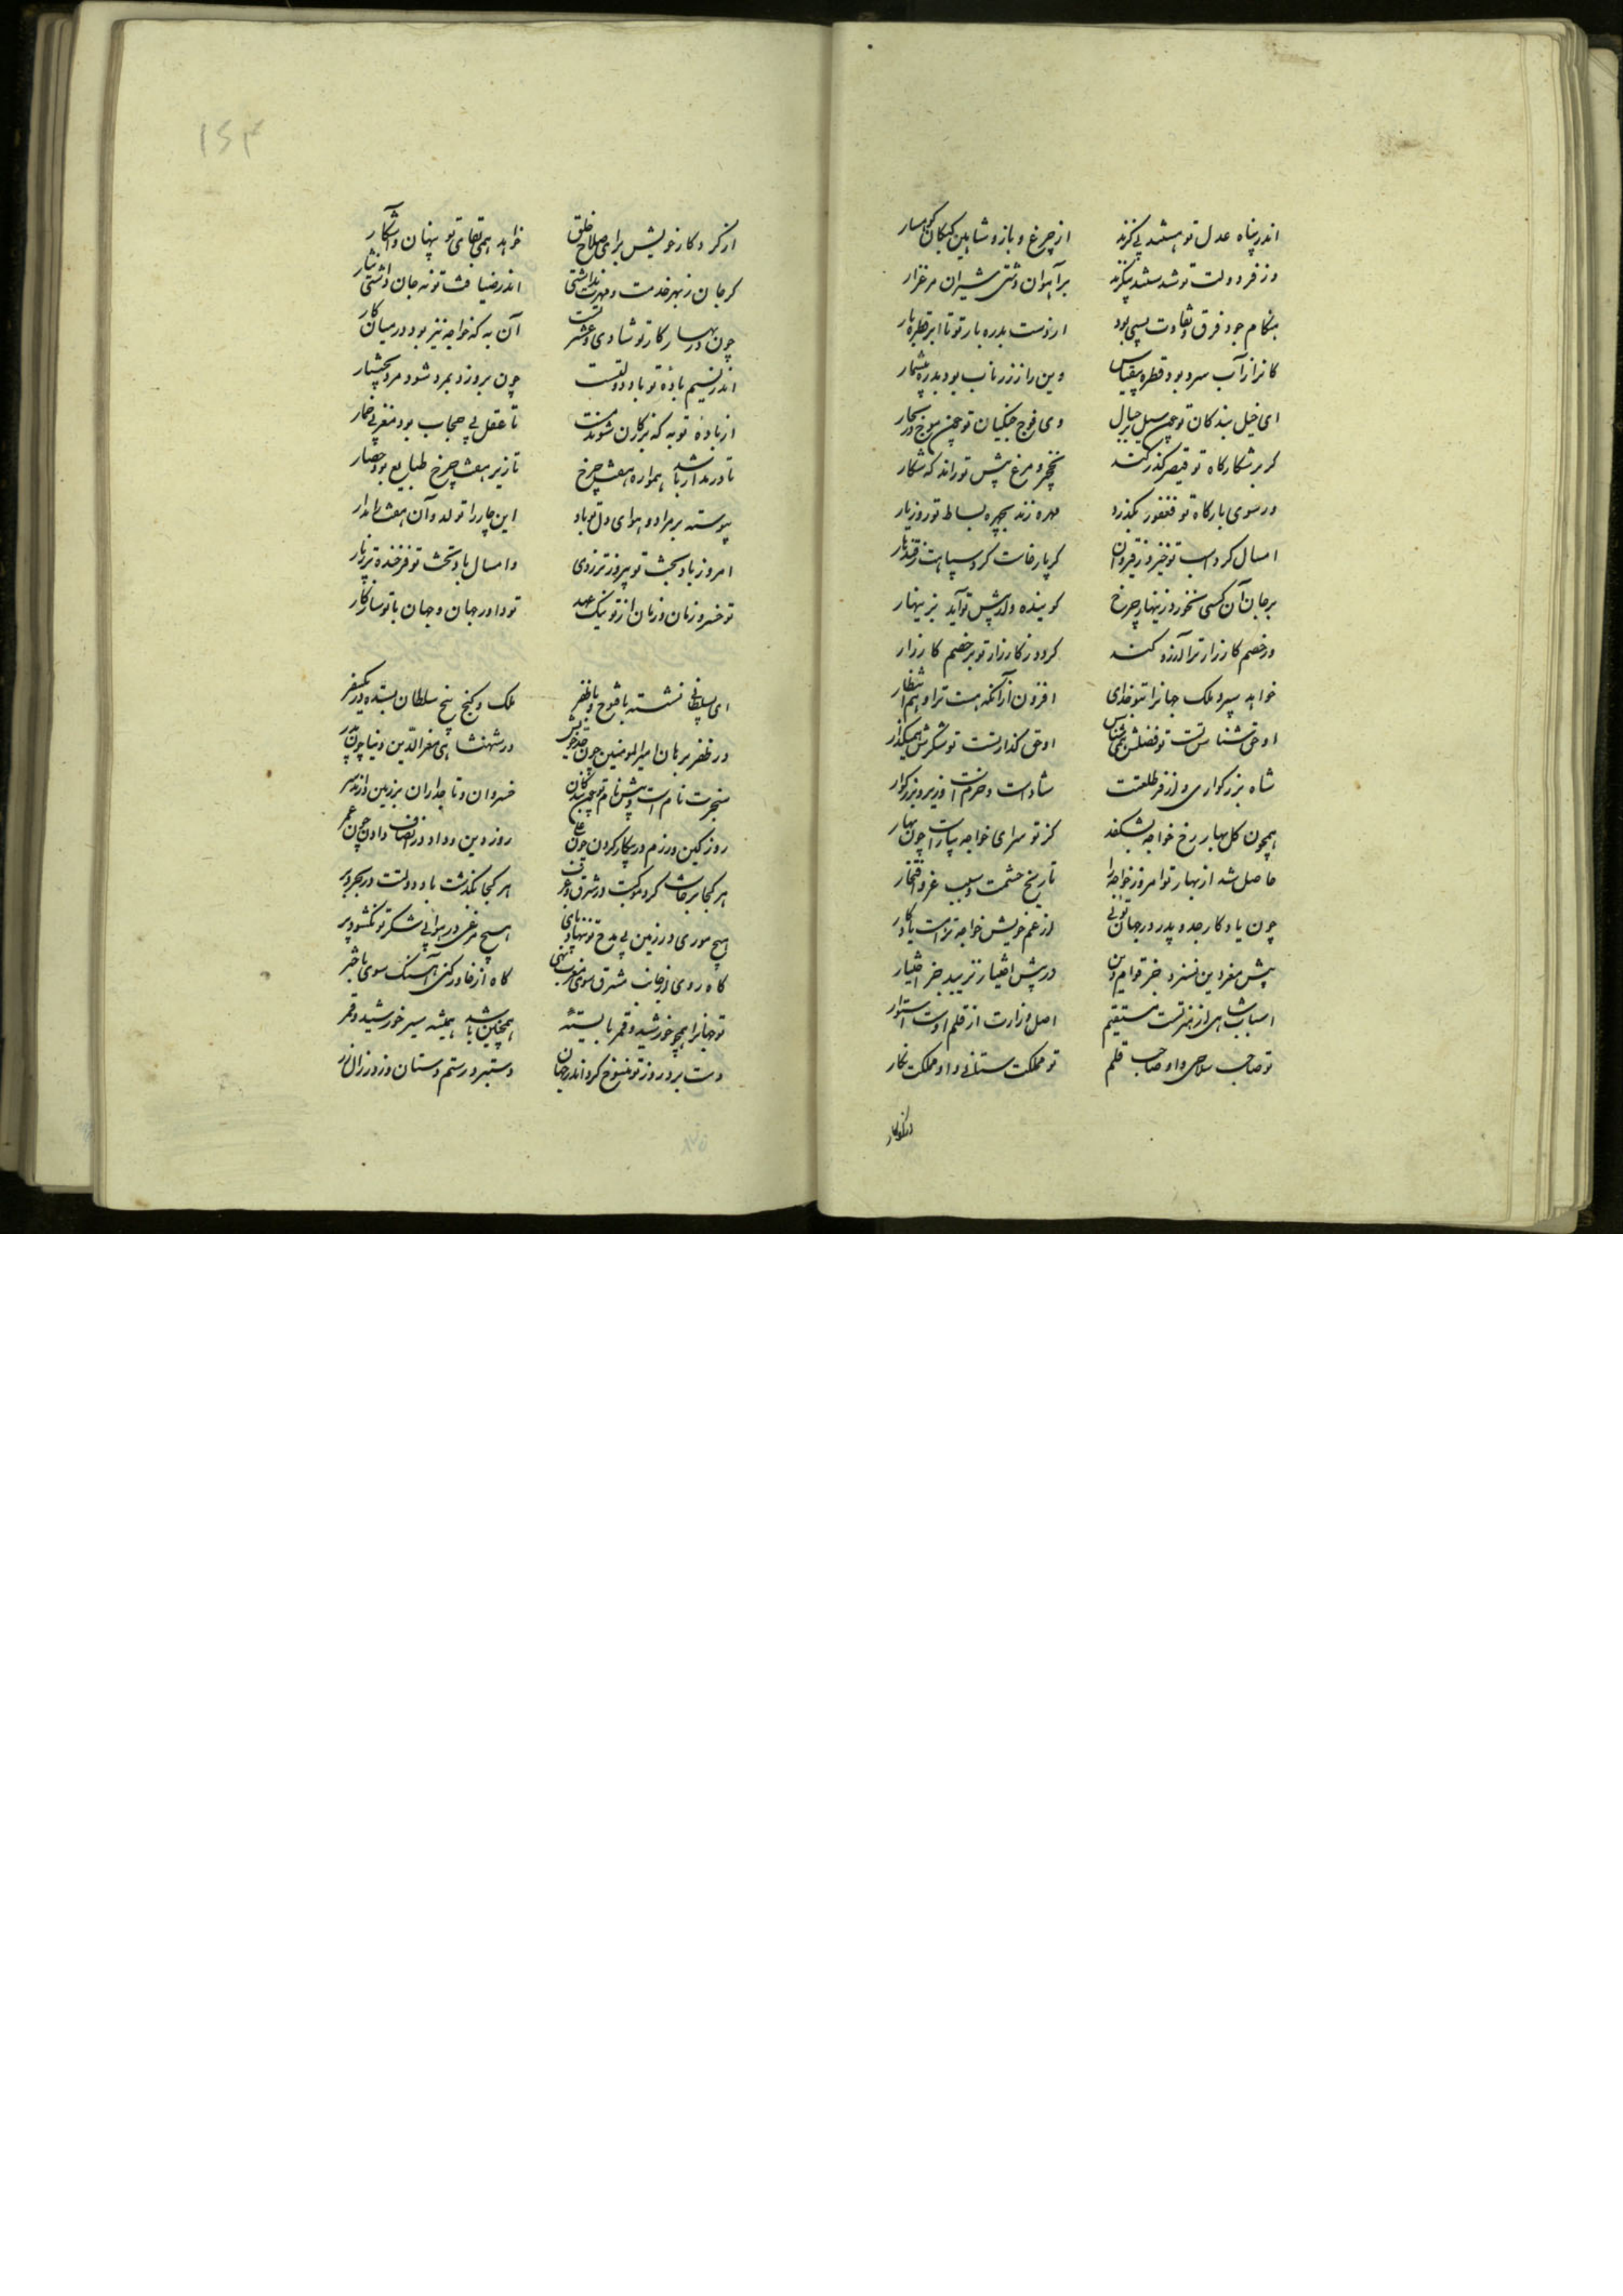 اندر پناه عدل تو هستند بی‌گزند از چرغ و باز و شاهین کبکان کوهسار
وز فر دولت تو شدستند بی‌گزند بر آهوان دشتی شیران مرغزار
هنگام جود فرق و تفاوت بسی بود از دست بدره بار تو تا ابر قطره بار
کانرا ز آب سرد بود قطره بیقیاس وین را ز زر ناب بود بدره بیشمار
ای خیل بندکان تو چون سیل بر جبال وی فوج جنکیان تو چون موج در بحار
کر بر شکارکاه تو قیصر گذر کند نخچیر و مرغ پیش تو راند که شکار
ور سوی بارکاه تو فغفور بگذرد مهره زند بچهره بساط تو روز بار
امسال کرد اسب تو خیزد ز قیروان کر پار خاست کرد سپاهت ز قندهار
بر جان آن کسی نخورد زینهار چرخ کو بنده وار پیش تو آید بزینهار
ور خصم کارزار ترا آرزو کند کردد ز کارزار تو بر خصم کار زار
خواهد سپرد ملک جهانرا بتو خدای افزون از آنکه هست ترا و هم انتظار
او حق شناس تست تو فضلش همی شناس او حق گذار تست تو شکرش همی گذار
شاه بزرکواری و از فر طلعتت شاداست و خرم است وزیر بزرکوار
همچون کل بهار رخ خواجه بشکفد کز تو سرای خواجه بیاراست چون بهار
حاصل شد از بهار تو امروز خواجه را تاریخ حشمت و سبب عز و افتخار
چون یادکار جد و پدر در جهان توئی از عم خویش خواجه تراست یادکار
پیش معز دین نسزد جز قوام دین در پیش اختیار نزیبد جز اختیار
اسباب شاهی از هنر تست مستقیم اصل وزارت از قلم اوست استوار
تو صاحب سلاحی و او صاحب قلم تو مملکت ستانی و او مملکت نکار
۱۵۴
از کردکار خویش برای صلاح خلق خواهد همی بقای تو پنهان و آشکار
کر جان ز بهر خدمت و مهرت نداشتی اندر ضیافت تو به جان داشتی نثار
چون در بهار کار تو شادی و عشرتست آن به که خواجه نیز بود در میان کار
اندر نسیم باده تو باد دولتست چون بر وزد بمرد شود مرد بختیار
از باده تو به که بزرکان شوند مست تا عقل بی حجاب بود مغز بی خمار
تا در مدار باشد همواره هفت چرخ تا زیر هفت چرخ طبایع بود چهار
پیوسته بر مراد و هوای دل تو باد این چار را تولد و آن هفت را مدار
امروز باد بخت تو پیروزتر ز دی وامسال باد تخت تو فرخنده‌تر ز پار
تو خسرو زمان و زمان از تو نیک عهد تو داور جهان و جهان با تو سازکار
ای بسلطانی نشسته با فتوح و با ظفر ملک و کنج پنج سلطان بستده در یک سفر
در ظفر برهان امیرالمومنین چون جد خویش در شهنشاهی معزالدین و دنیا چون پدر
سنجرت نام است و پیش نام تو چون بندکان خسروان و تاجداران بر زمین دارند سر
روز کین و رزم در پیکار کردن چون علی روز دین و داد در انصاف دادن چون عمر
هر کجا برخاست کرد موکبت در شرق و غرب هر کجا بگذشت باد دولتت در بحر و بر
هیچ موری در زمین بی مدح تو ننهاد پای هیچ مرغی در هوا بی شکر تو نکشود پر
کاه روی از جانب مشرق سوی مغرب نهی کاه از خاور کنی آهنک سوی باختر
تو جهانرا همچو خورشید و قمر بایسته‌ای همچنین باشد همیشه سیر خورشید و قمر
دست برد روز تو منسوخ کرد اندر جهان دستبرد رستم دستان و زور زال زر